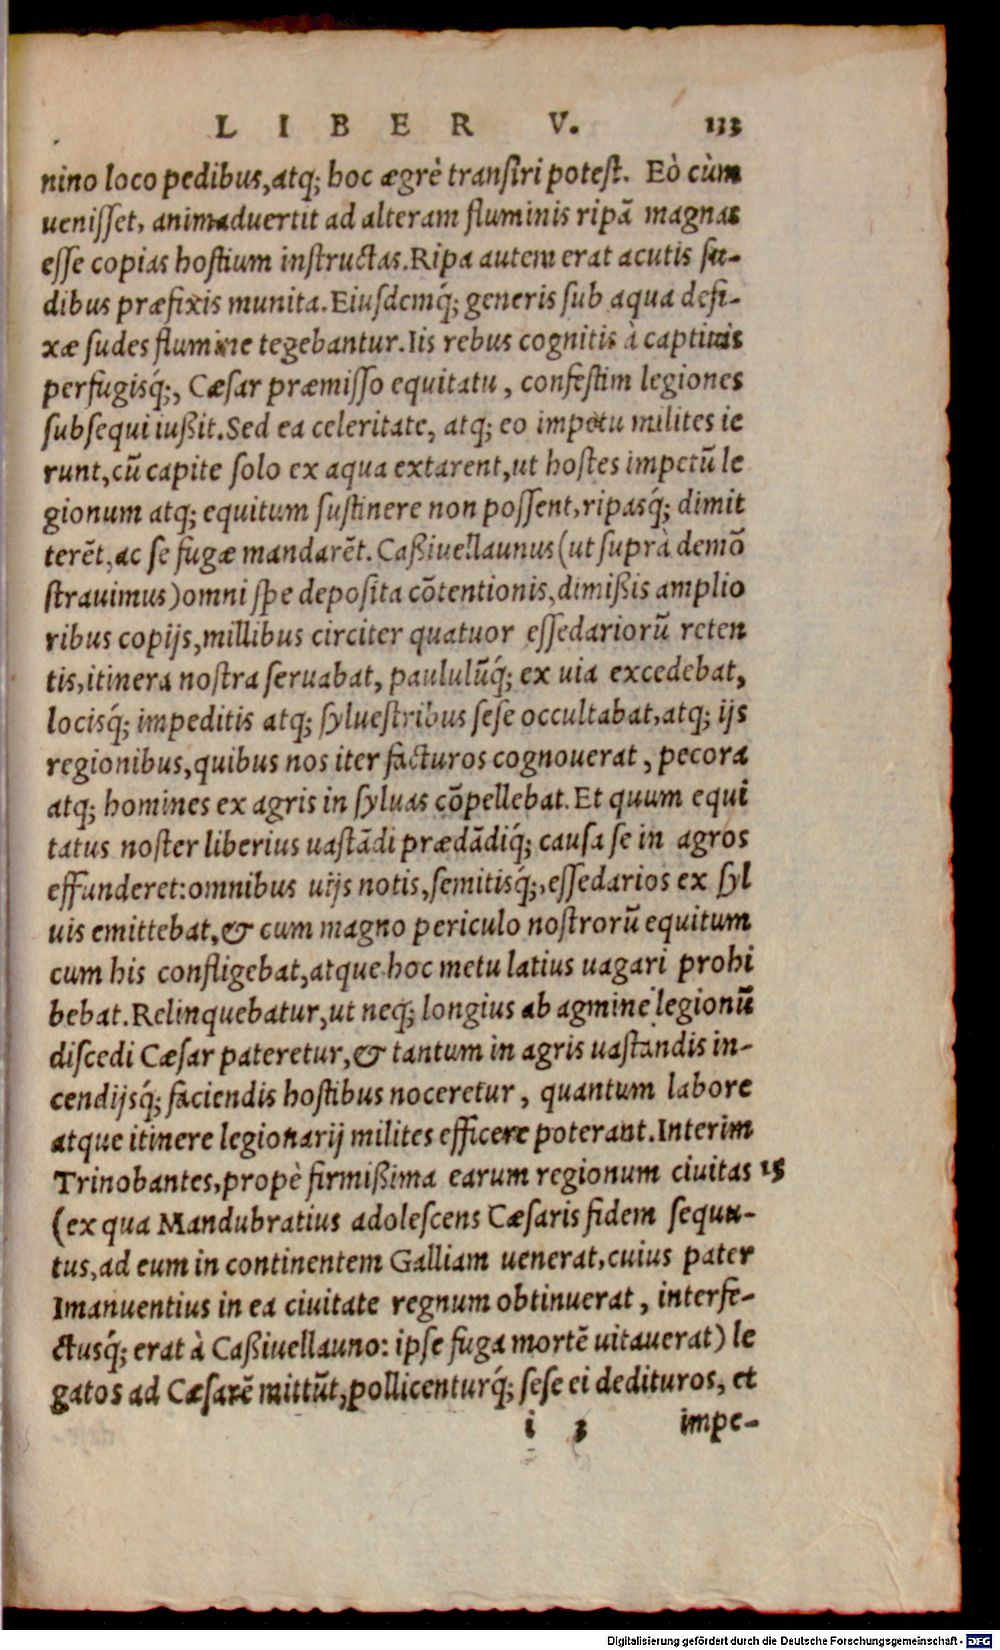 LIBER V. 133
nino loco pedibus, atq; hoc ægrè transiri potest. Eò cùm
uenisset, animaduertit ad alteram fluminis ripã magnas
esse copias hostium instructas. Ripa autem erat acutis su-
dibus præfixis munita. Eiusdemq́; generis sub aqua defi-
xæ sudes flumine tegebantur. Iis rebus cognitis à captiuis
perfugisq́;, Cæsar præmisso equitatu, confestim legiones
subsequi iußit. Sed ea celeritate, atq; eo impetu milites ie
runt, cũ capite solo ex aqua extarent, ut hostes impetũ le
gionum atq; equitum sustinere non possent, ripasq́; dimit
terẽt, ac se fugæ mandarẽt. Caßiuellaunus (ut suprà demõ
strauimus) omni spe deposita cõtentionis, dimißis amplio
ribus copijs, millibus circiter quatuor essedariorũ reten
tis, itinera nostra seruabat, paululũq́; ex uia excedebat,
locisq́; impeditis atq; syluestribus sese occultabat, atq; ijs
regionibus, quibus nos iter facturos cognouerat, pecora
atq; homines ex agris in syluas cõpellebat. Et quum equi
tatus noster liberius uastãdi prædãdiq́; causa se in agros
effunderet: omnibus uijs notis, semitisq́;, essedarios ex syl
uis emittebat, & cum magno periculo nostrorũ equitum
cum his confligebat, atque hoc metu latius uagari prohi
bebat. Relinquebatur, ut neq; longius ab agmine legionũ
discedi Cæsar pateretur, & tantum in agris uastandis in-
cendijsq́; faciendis hostibus noceretur, quantum labore
atque itinere legionarij milites efficere poterant. Interim
Trinobantes, propè firmißima earum regionum ciuitas 15
(ex qua Mandubratius adolescens Cæsaris fidem sequu-
tus, ad eum in continentem Galliam uenerat, cuius pater
Imanuentius in ea ciuitate regnum obtinuerat, interfe-
ctusq́; erat à Caßiuellauno: ipse fuga mortẽ uitauerat) le
gatos ad Cæsarẽ mittũt, pollicenturq́; sese ei dedituros, et
i 3 impe-
Digitalisierung gefördert durch die Deutsche Forschungsgemeinschaft - DFG